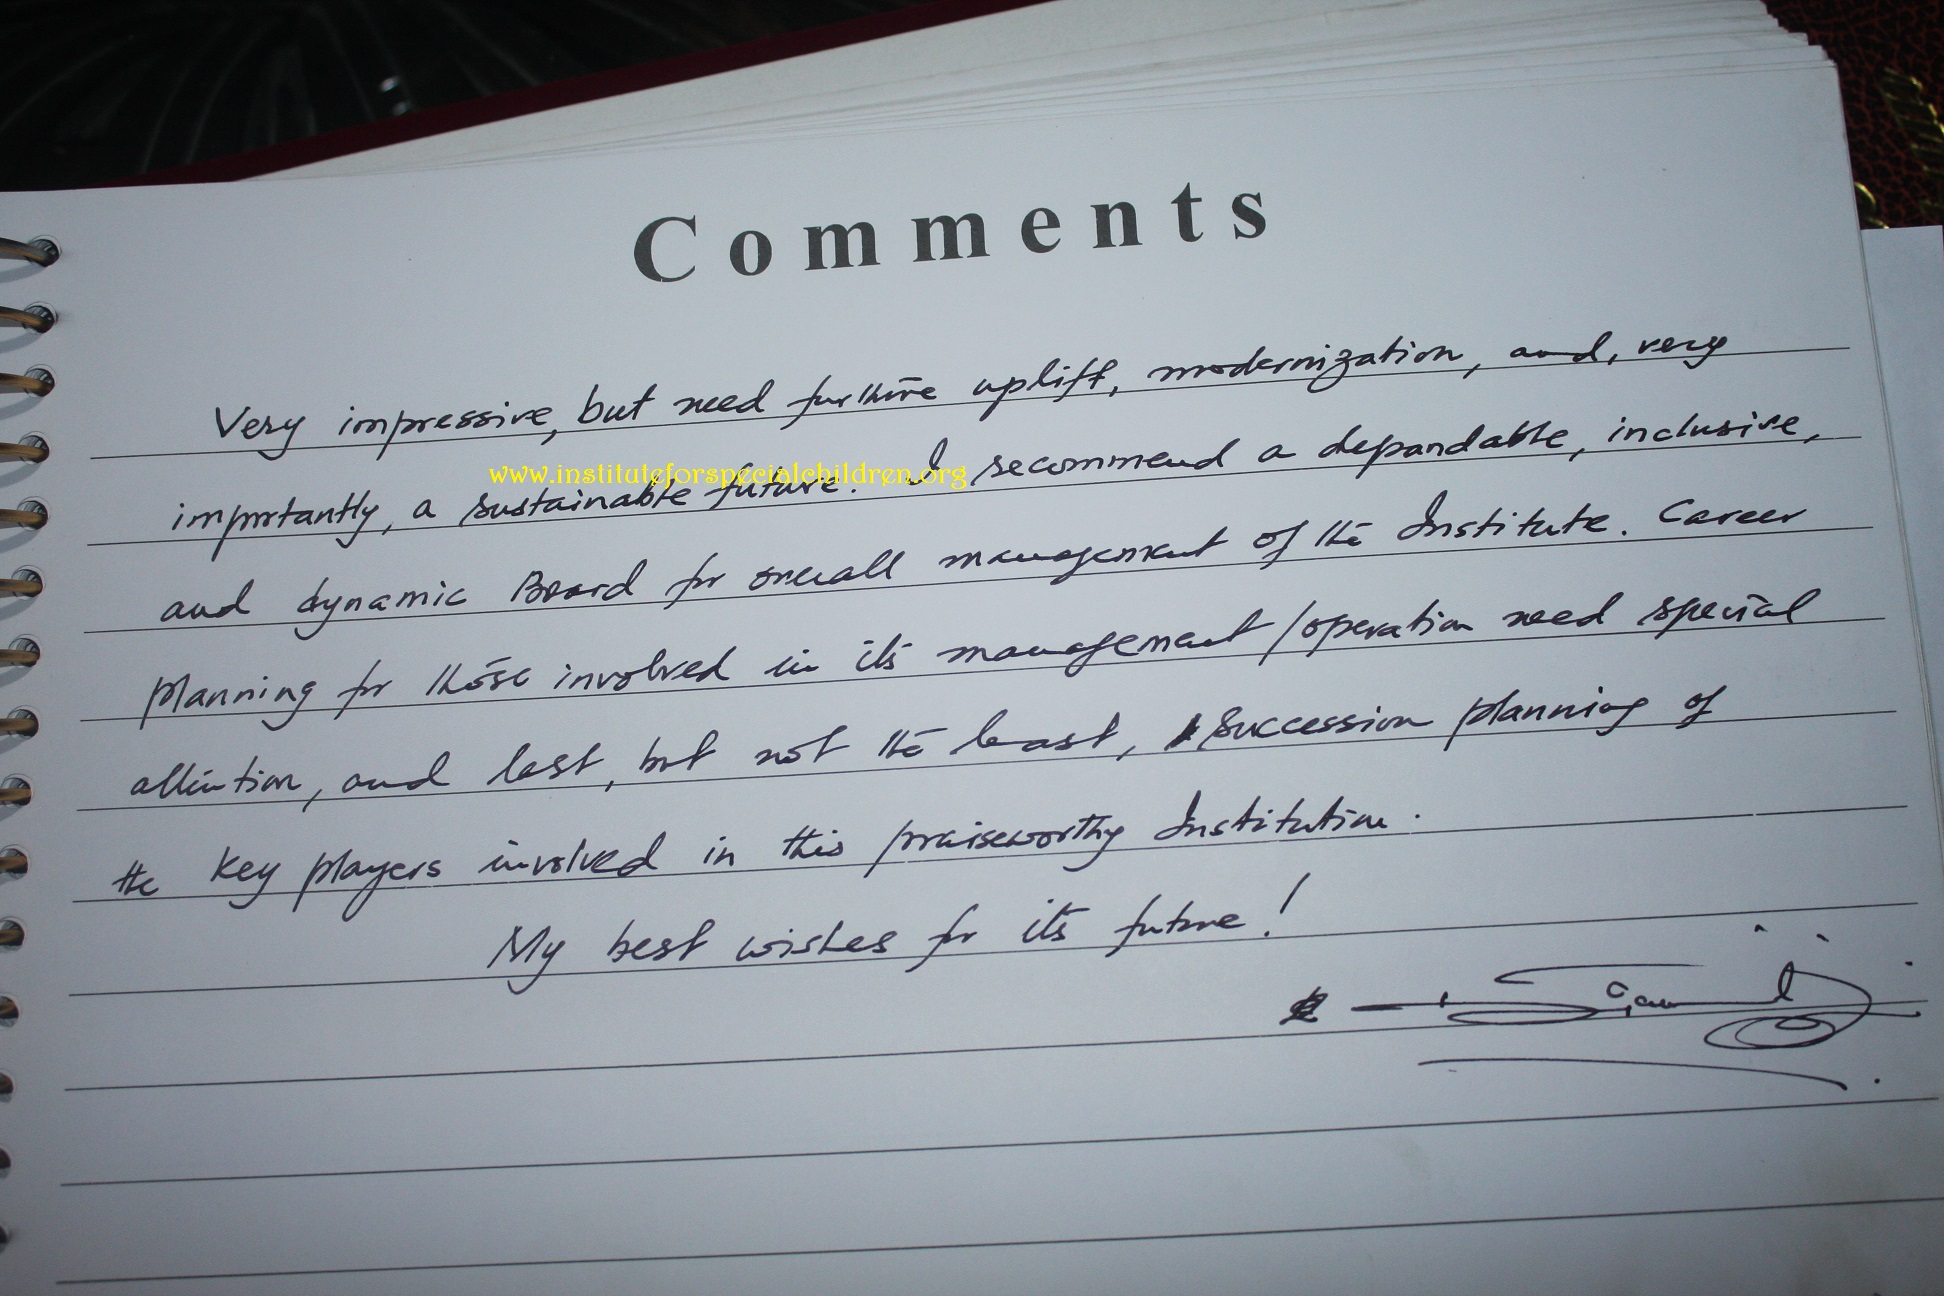 Comments
Very impressive, but need further uplift, modernization, and, very
importantly, a sustainable future. I recommend a depandable, inclusive,
www.instituteforspecialchildren.org
and dynamic Board for overall management of the Institute. Career
planning for those involved in its management/operation need special
attention, and last, but not the least, succession planning of
the key players involved in this praiseworthy Institution.
My best wishes for its future!